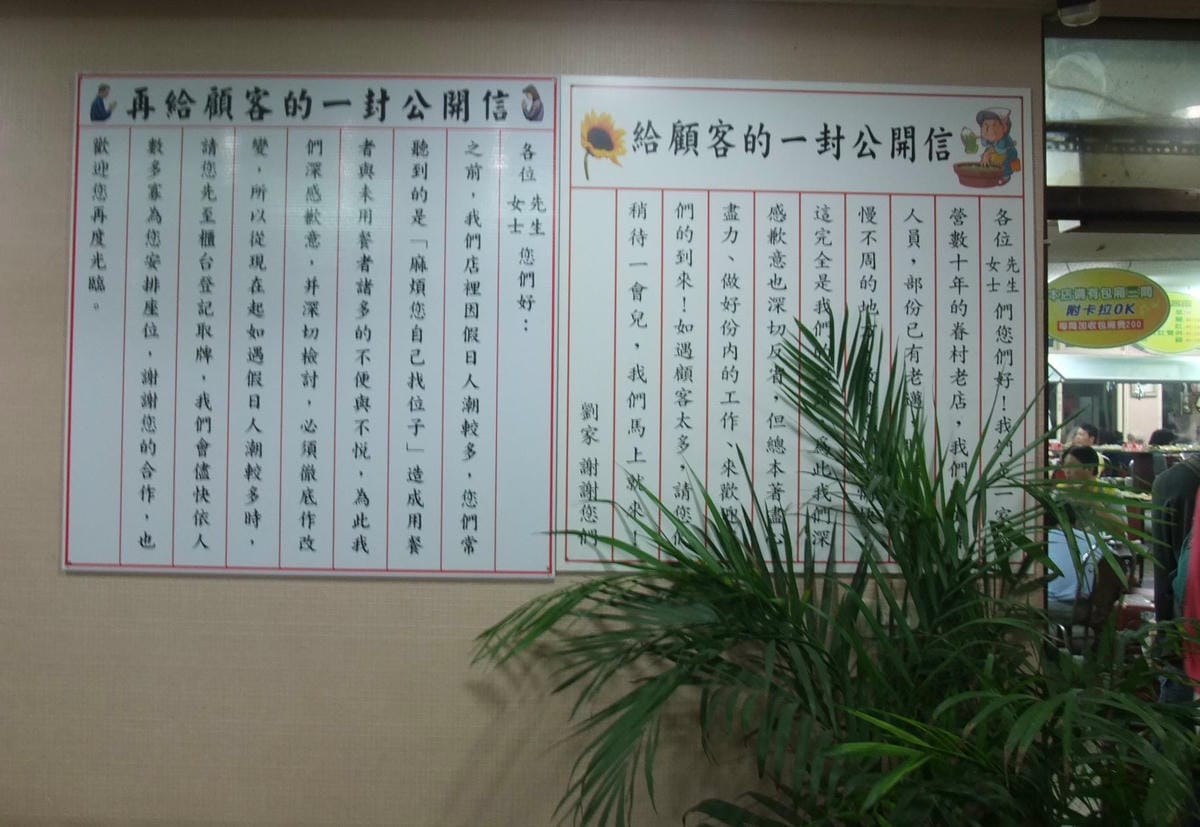 給顧客的一封公開信
各位先生女士們您好!我們是一家
營數十年的眷村老店,我們
人員,部份已有老邁,
慢不周的地方
這完全是我們的 為此我們深
感歉意也深切反省,但總本著盡心
盡力、做好份內的工作、來歡迎
們的到來!如遇顧客太多,請您們
稍待一會兒,我們馬上就來!
劉家 謝謝您們
再給顧客的一封公開信
各位先生女士您們好:
之前,我們店裡因假日人潮較多,您們常
聽到的是「麻煩您自己找位子」造成用餐
者與未用餐者諸多的不便與不悅,為此我
們深感歉意,并深切檢討,必須徹底作改
變,所以從現在起如遇假日人潮較多時,
請您先至櫃台登記取牌,我們會儘快依人
數多寡為您安排座位,謝謝您的合作,也
歡迎您再度光臨。
本店備有包廂二間
附卡拉OK
每間加收包廂費200